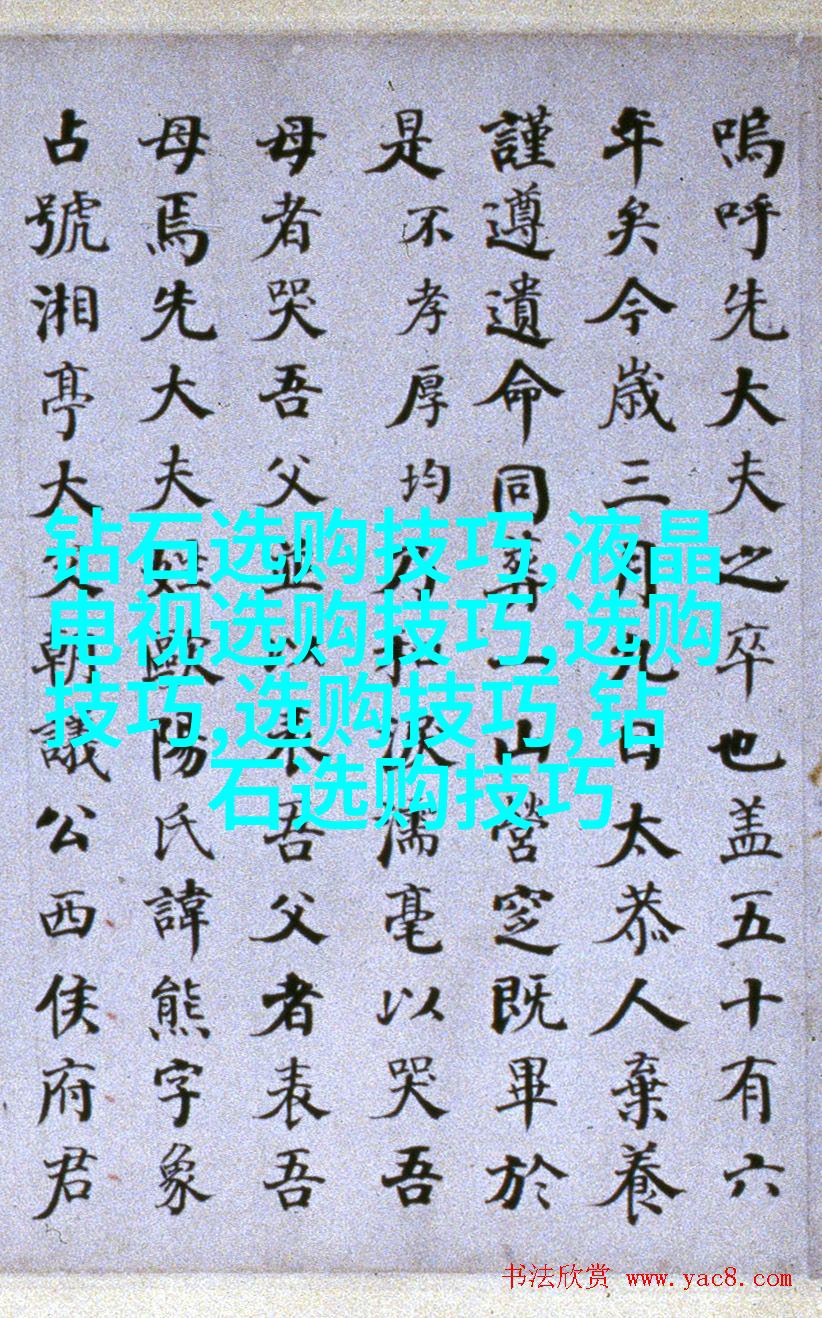 嗚呼先大夫之卒也盖五十有六
年矣今歳三月九日太恭人棄養
謹遵遺命同葬一山營窆既畢於
是不孝厚均淚濡毫以哭吾
母者哭吾父並以表吾父者表吾
母焉先大夫姓歐陽氏諱熊字象
占號湘亭大父朝議公西侯府君
钻石选购技巧,液晶
电视选购技巧,选购
技巧,选购技巧,钻
石选购技巧
书法欣赏 www.yac8.com